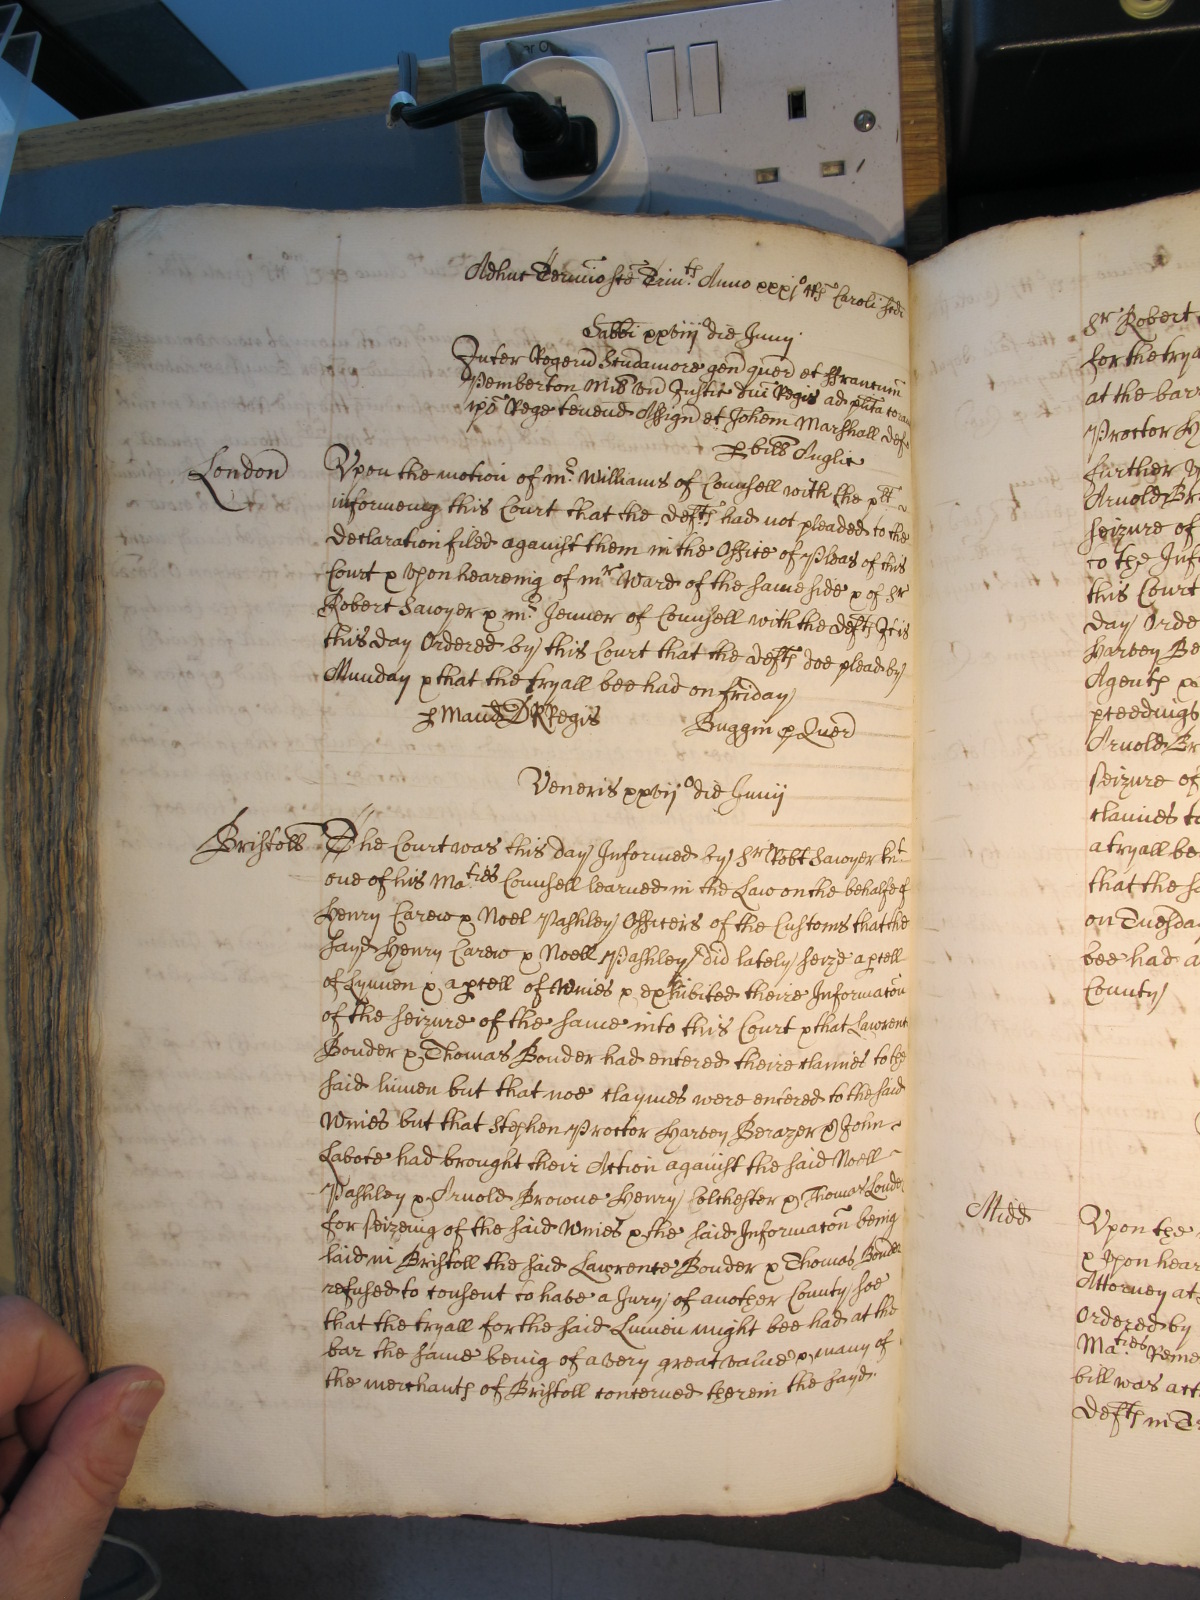 Adhuc Termino scē Trin.ts Anno xxxjo Rs Caroli scdi
Sabbi xxviijo die Junij
Inter Rogerū Scudamore gen quer et Franciscū
Pemberton Mil vn Justic dni Regis ad plita coram
ipō Rege tenend Assign et Johem Marshall def
P bill Anglic
London
Vpon the motion of mr. Williams of Counsell with the plt
informeing this Court that the defts had not pleaded to the
declaration filed against them in the Office of Pleas of this
Court & vpon heareing of mr Ward of the same side & of Sr
Robert Sawyer & mr. Jenner of Counsell with the defts It is
this day Ordered by this Court that the defts doe plead by
Munday & that the tryall bee had on friday
P Mand Regis
Buggin p Quer
Veneris xxvijo die Junij
Bristoll
The Court was this day Informed by Sr Robt Sawyer knt.
one of his Maties Counsell learned in the Law on the behalfe of
Henry Carew & Noel Pashley Officers of the Customs that the
sayd Henry Carew & Noell Pashley did lately seize a pcell
of Lynnen & a pcell of Wines & exhibited theire Informacōn
of the seizure of the same into this Court & that Lawrence
Bonder & Thomas Bonder had entered theire claimes to the
said linnen but that noe claymes were entered to the said
Wines but that Stephen Proctor Harvey Berazer & John
Labote had brought their Action against the said Noell
Pashley & Arnold Browne Henry Colchester & Thomas
for seizeing of the said Wines & the said Informacōn being
laid in Bristoll the said Lawrence Bonder & Thomas Bonder
refused to consent to have a Jury of another County soe
that the tryall for the said Linnen might bee had at the
bar the same being of a very great value & many of
the merchants of Bristoll concerned therein the sayd
Sr Robert
for the trya
at the barr
Proctor H
further
Arnold Br
seizure of
to the Info
this Court
day Orde
Harvey Be
Agents
pceedings
Arnold Br
seizure of
claimes to
a tryall be
that the sa
on Tuesda
bee had a
County
Midd
Vpon the
& vpon hear
Attorney at
Ordered by
Maties Reme
bill was
defts in